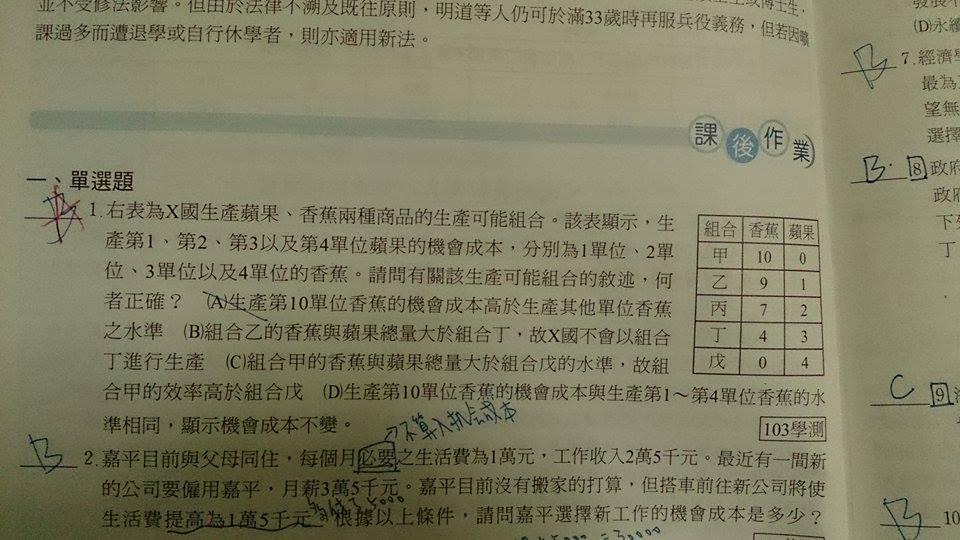 並不受修法影響。但由於法律不溯及既往原則，明道等人仍可於滿33歲時再服兵役義務，但若因曠
課過多而遭退學或自行休學者，則亦適用新法。
課後作業
一、單選題
B
1.右表為X國生產蘋果、香蕉兩種商品的生產可能組合。該表顯示，生
產第1、第2、第3以及第4單位蘋果的機會成本，分別為1單位、2單
位、3單位以及4單位的香蕉。請問有關該生產可能組合的敘述，何
者正確？ (A)生產第10單位香蕉的機會成本高於生產其他單位香蕉
之水準 (B)組合乙的香蕉與蘋果總量大於組合丁，故X國不會以組合
丁進行生產 (C)組合甲的香蕉與蘋果總量大於組合戊的水準，故組
合甲的效率高於組合戊 (D)生產第10單位香蕉的機會成本與生產第1～第4單位香蕉的水
準相同，顯示機會成本不變。
103學測
組合 香蕉 蘋果
甲 10 0
乙 9 1
丙 7 2
丁 4 3
戊 0 4
不算入机会成本
B
2.嘉平目前與父母同住，每個月必要之生活費為1萬元，工作收入2萬5千元。最近有一間新
的公司要僱用嘉平，月薪3萬5千元。嘉平目前沒有搬家的打算，但搭車前往新公司將使
生活費提高為1萬5千元。根據以上條件，請問嘉平選擇新工作的機會成本是多少？
(D)永續
B
7.經濟學
最為
望無
選擇
B.
8 政府
政府
下列
丁
C
9
B
10